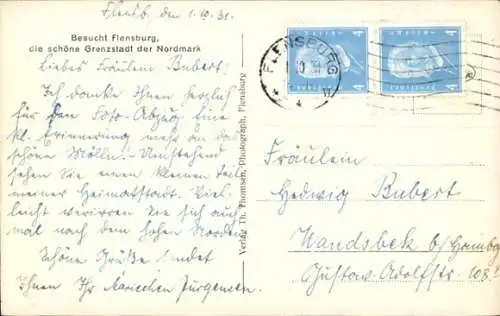 Flensb., den 1.10.31.
Besucht Flensburg,
die schöne Grenzstadt der Nordmark
Liebes Fräulein Bubert!
Ich danke Ihnen herzlich
für den Foto-Abzug, eine
kl. Erinnerung mehr an das
schöne Mölln! - Umstehend
sehen Sie einen kleinen Teil
meiner Heimatstadt. Viel-
leicht verirren Sie sich auch
mal nach dem hohen Norden.
Schöne Grüße sendet
Ihnen Ihr Mariechen Jürgensen.
Verlag Th. Thomsen, Photograph, Flensburg
FLENSBURG
Fräulein
Hedwig Bubert
Wandsbek b/Hambg
Gustav-Adolfstr. 108!